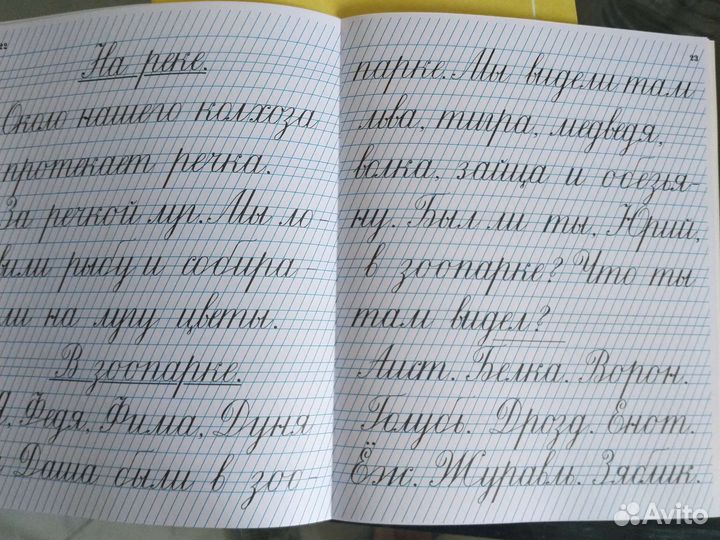 22
На реке.
Около нашего колхоза
протекает речка.
За речкой луг. Мы ло-
вили рыбу и собира-
ли на лугу цветы.
В зоопарке.
Я, Федя, Фима, Дуня
и Даша были в зоо-
23
парке. Мы видели там
льва, тигра, медведя,
волка, зайца и обезья-
ну. Был ли ты, Юрий,
в зоопарке? Что ты
там видел?
Аист. Белка. Ворон.
Голубь. Дрозд. Енот.
Ёж. Журавль. Зяблик.
Avito